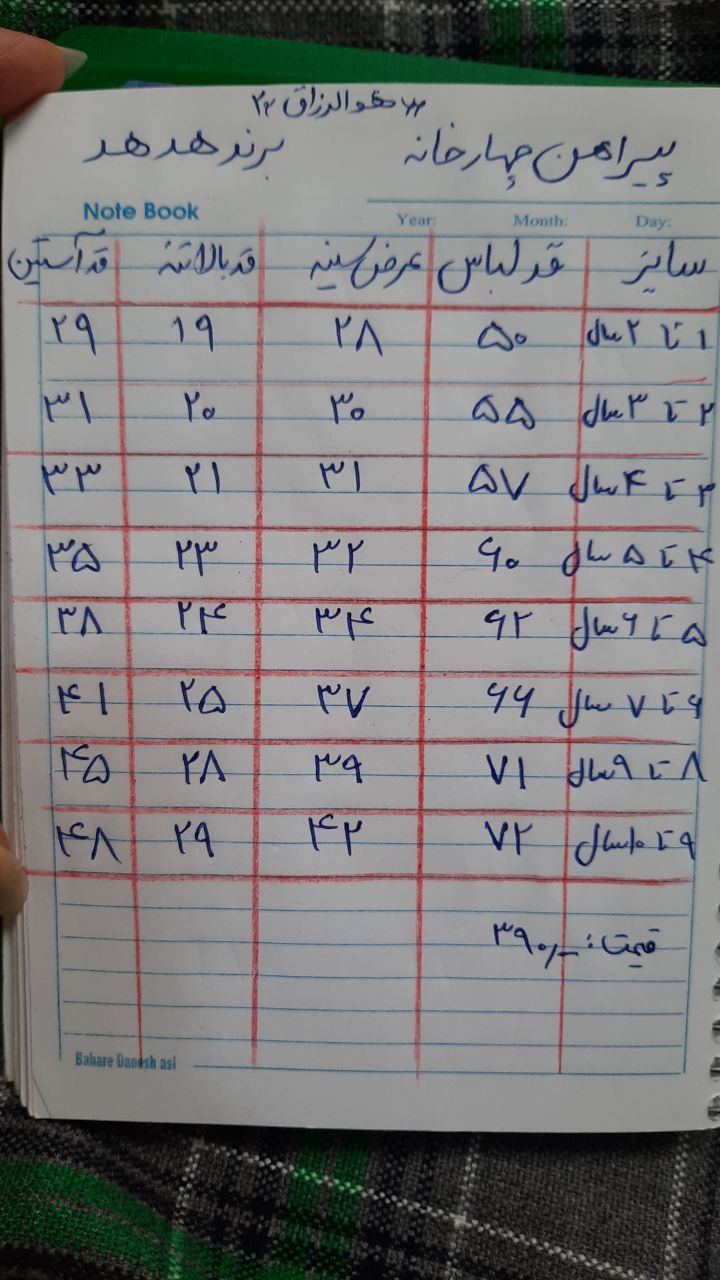 هوالرزاق
پیراهن چهارخانه برند هدهد
Note Book Year: Month: Day:
سایز قد لباس عرض سینه قد بالاتنه قد آستین
۱ تا ۲ سال ۵۰ ۲۸ ۱۹ ۲۹
۲ تا ۳ سال ۵۵ ۳۰ ۲۰ ۳۱
۳ تا ۴ سال ۵۷ ۳۱ ۲۱ ۳۳
۴ تا ۵ سال ۶۰ ۳۲ ۲۳ ۳۵
۵ تا ۶ سال ۶۲ ۳۴ ۲۴ ۳۸
۶ تا ۷ سال ۶۶ ۳۷ ۲۵ ۴۱
۸ تا ۹ سال ۷۱ ۳۹ ۲۸ ۴۵
۹ تا ۱۰ سال ۷۲ ۴۲ ۲۹ ۴۸
قیمت: ۳۹۰/-
Bahare Danesh asl